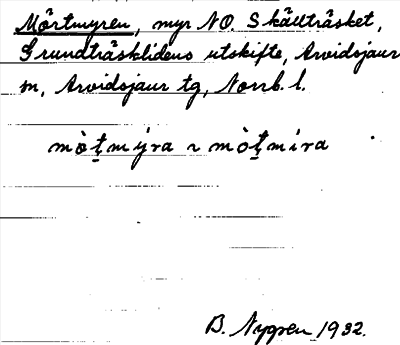 Mörtmyren, myr NO. Skällträsket,
Grundträsklidens utskifte, Arvidsjaur
m, Arvidsjaur tg, Norrb. l.
mòṯmýra ~ mòṯmíra
B. Nygren 1932.